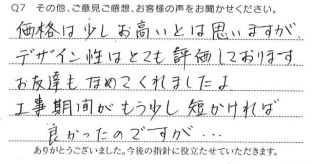 Q7 その他、ご意見ご感想、お客様の声をお聞かせください。
価格は少しお高いとは思いますが、
デザイン性はとても評価しております
お友達もほめてくれましたよ
工事期間がもう少し短かければ
良かったのですが…
ありがとうございました。今後の指針に役立たせていただきます。